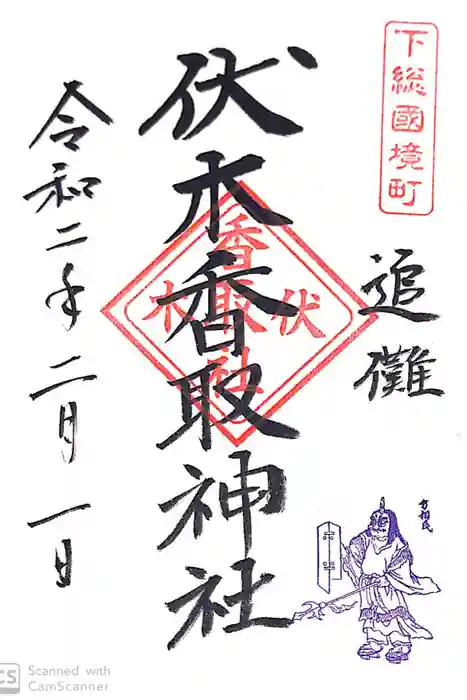 下総國境町
追儺
方相氏
伏木香取神社
香取社
伏木
令和二年二月一日
CS
Scanned with
CamScanner